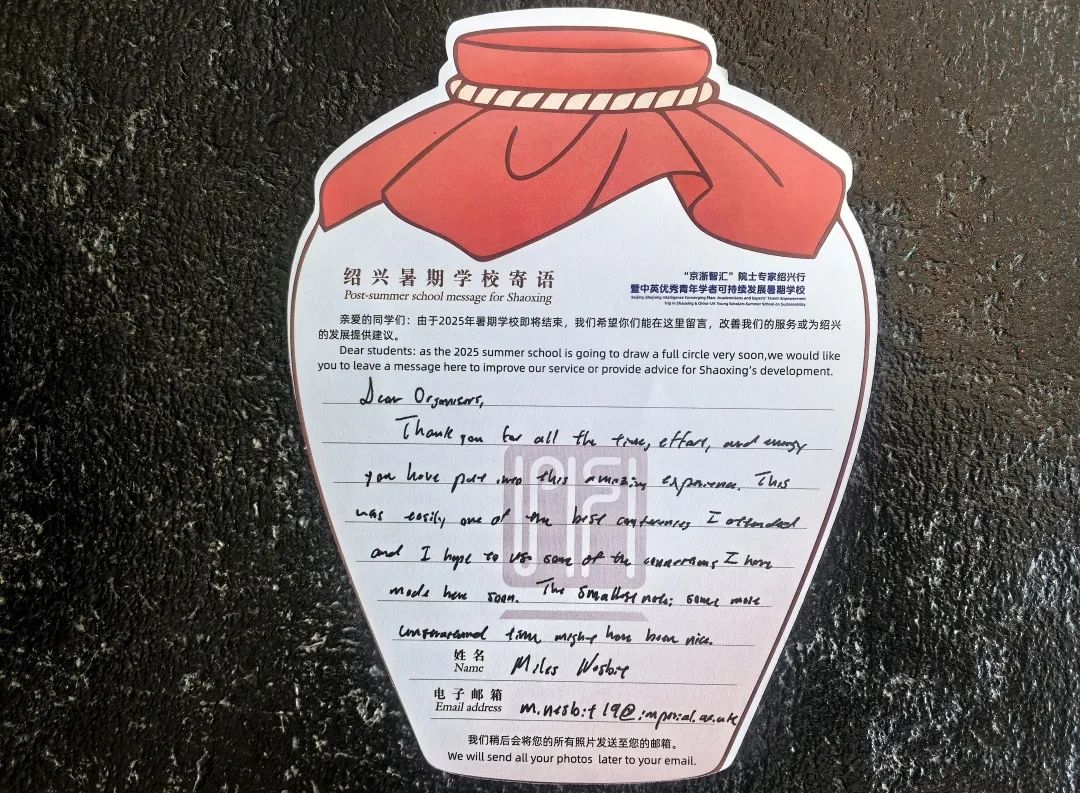 绍兴暑期学校寄语
Post-summer school message for Shaoxing
“京浙智汇”院士专家绍兴行
暨中英优秀青年学者可持续发展暑期学校
Beijing-Zhejiang Intelligence Converging Plan: Academicians and Experts' Talent-Empowerment
Trip in Shaoxing & China-UK Young Scholars Summer School on Sustainability
亲爱的同学们：由于2025年暑期学校即将结束，我们希望你们能在这里留言，改善我们的服务或为绍兴
的发展提供建议。
Dear students: as the 2025 summer school is going to draw a full circle very soon,we would like
you to leave a message here to improve our service or provide advice for Shaoxing's development.
Dear Organisers,
Thank you for all the time, effort, and energy
you have put into this amazing experience. This
was easily one of the best conferences I attended
and I hope to use some of the connections I have
made here soon. The smallest note; some more
unstructured time might have been nice.
姓名
Name
Miles Nesbit
电子邮箱
Email address
m.nesbit19@imperial.ac.uk
我们稍后会将您的所有照片发送至您的邮箱。
We will send all your photos later to your email.